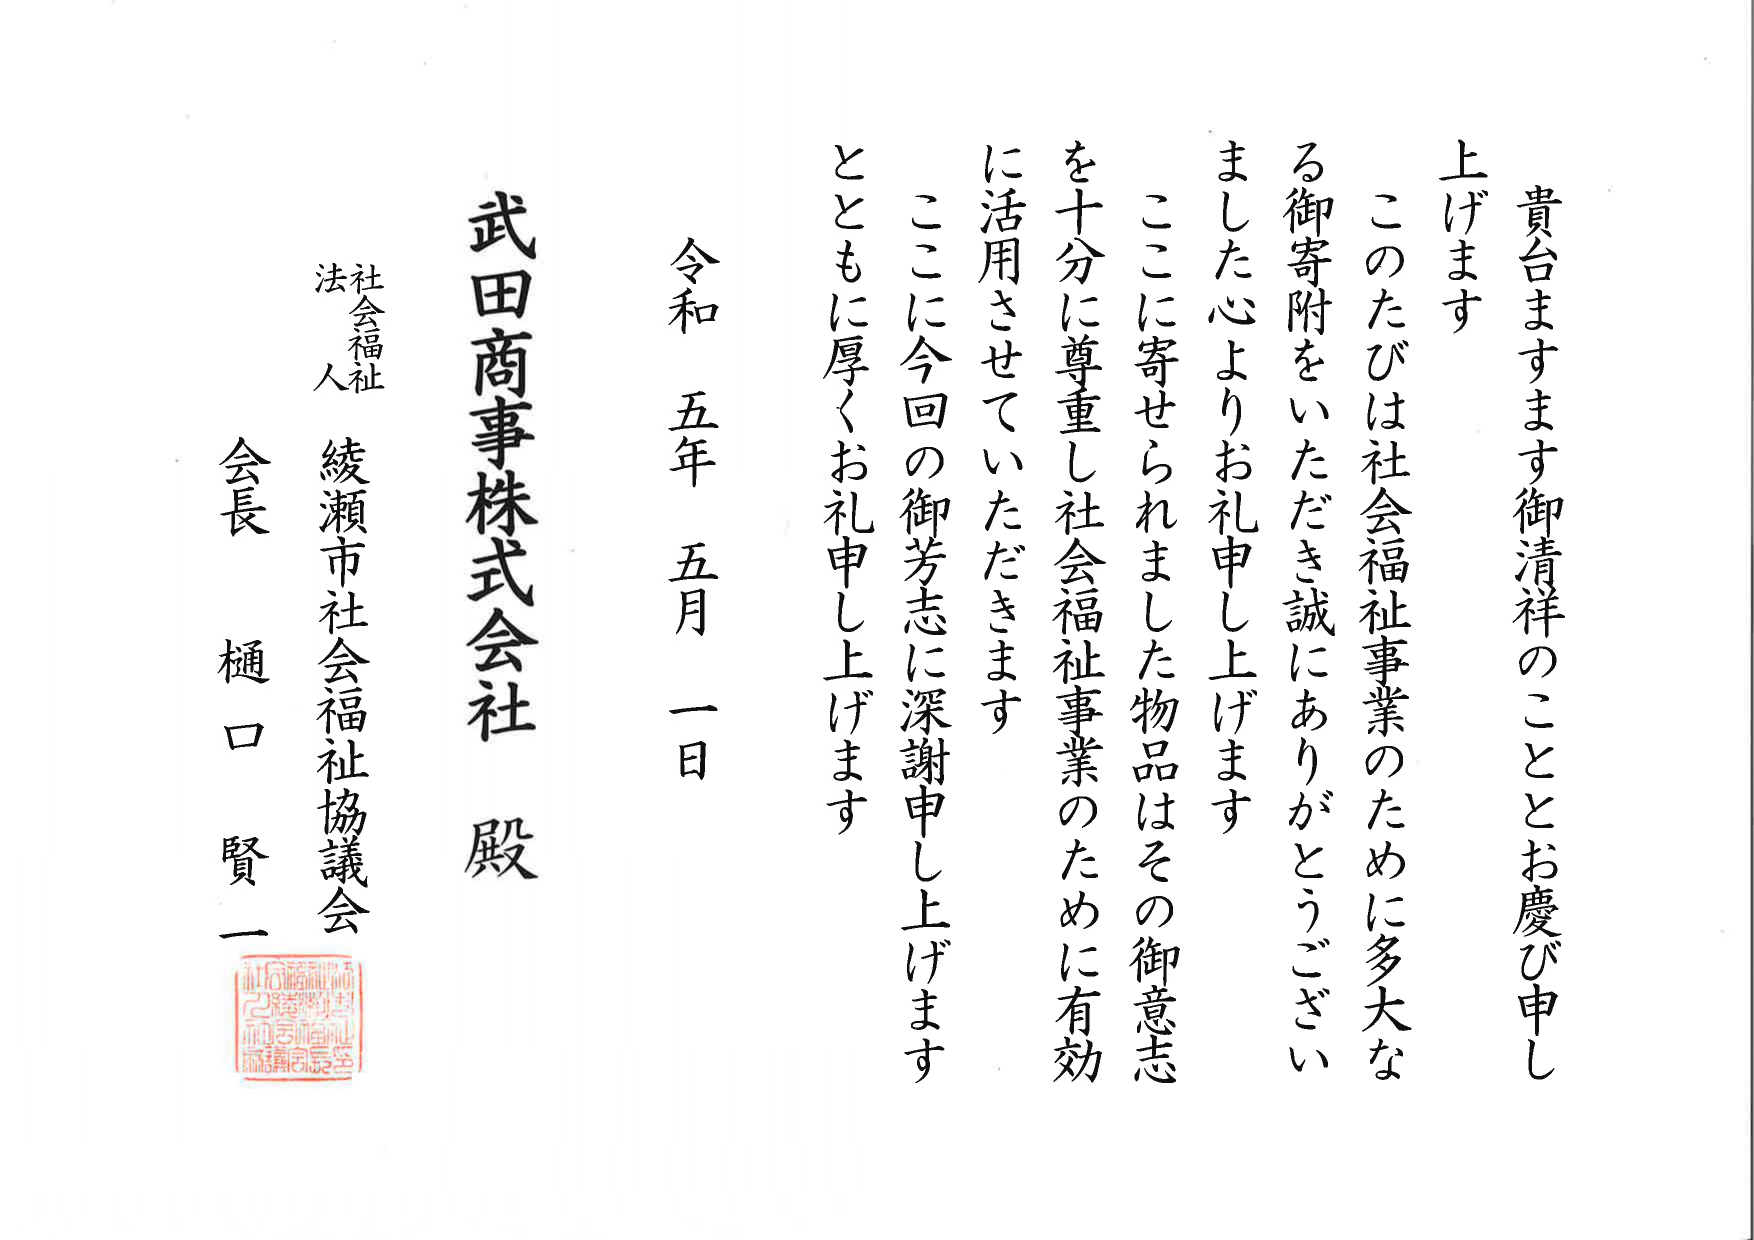 貴台ますます御清祥のこととお慶び申し
上げます
このたびは社会福祉事業のために多大な
る御寄附をいただき誠にありがとうござい
ました心よりお礼申し上げます
ここに寄せられました物品はその御意志
を十分に尊重し社会福祉事業のために有効
に活用させていただきます
ここに今回の御芳志に深謝申し上げます
とともに厚くお礼申し上げます
令和 五年 五月 一日
武田商事株式会社 殿
社会福祉
法人 綾瀬市社会福祉協議会
会長 樋口 賢一